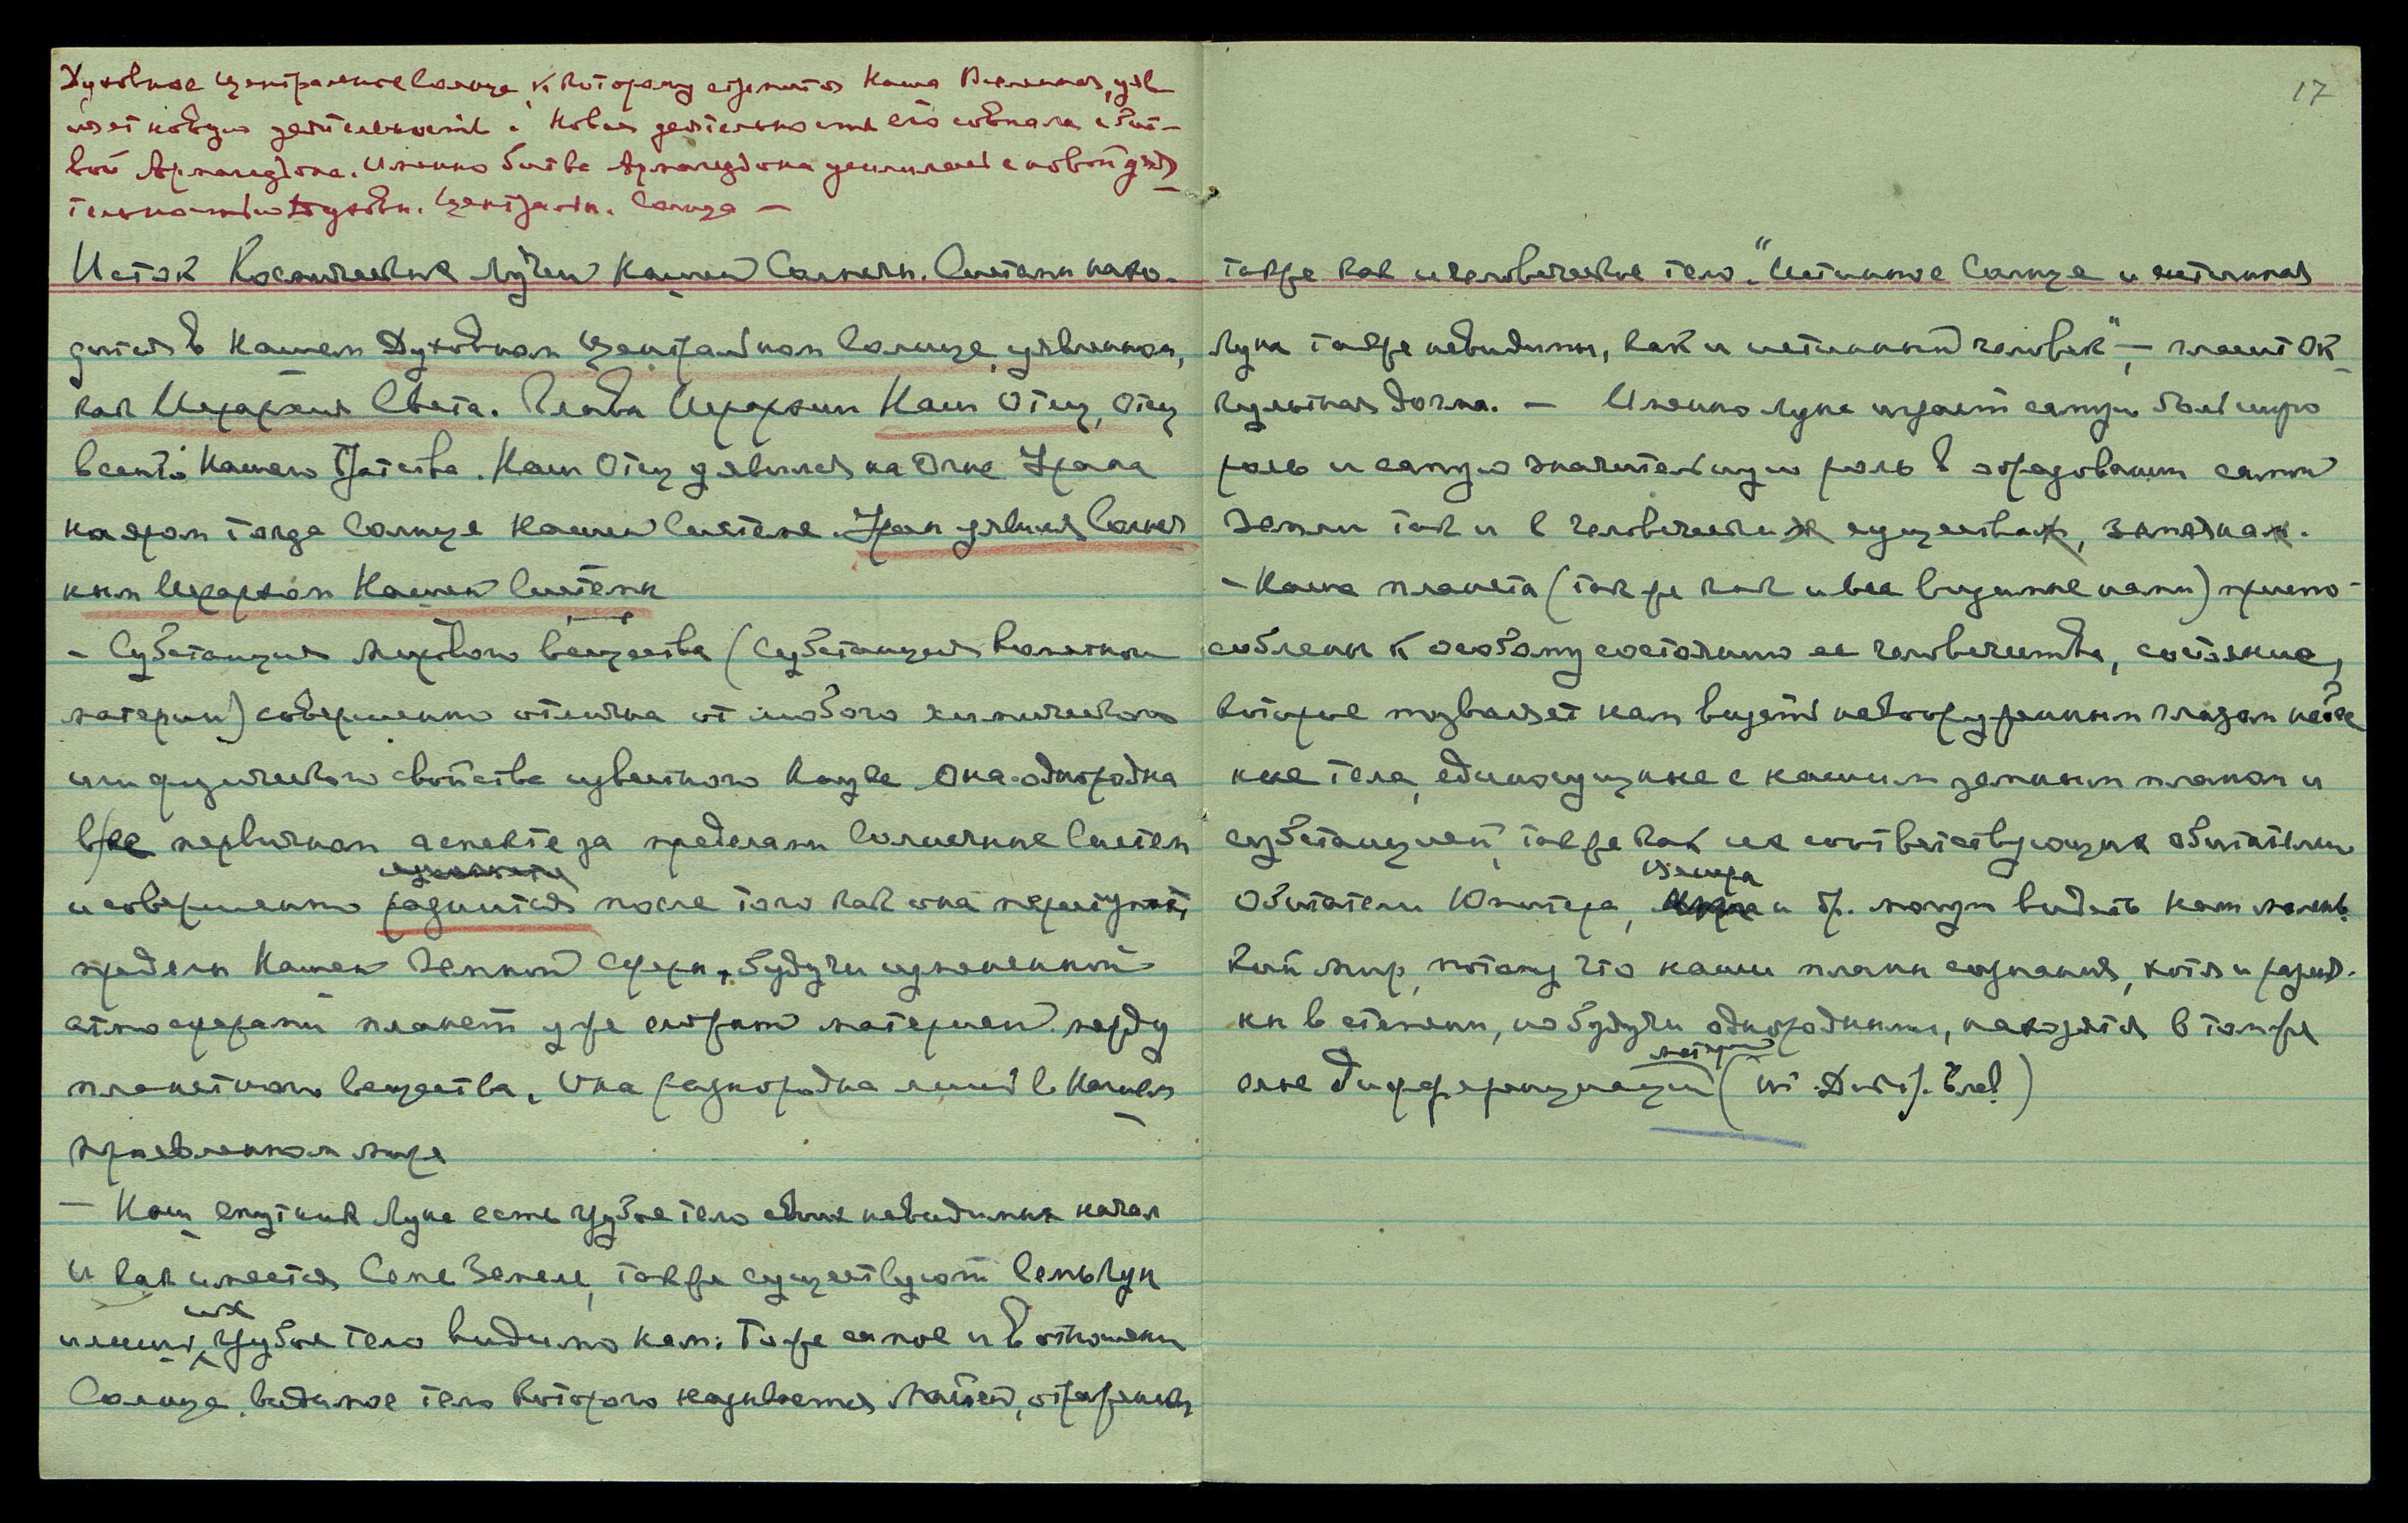 Духовное Центральное Солнце, к которому стремится Наша Вселенная, уяв
ляет новую деятельность. Новая деятельность его совпала с Бит-
вой Армагеддона. Именно битва Армагеддона усилилась с новой дея
тельностью Духовн. Централн. Солнца —
Исток Космических Лучей Нашей Солнечн. Системы нахо-
дится в Нашем Духовном Центральном Солнце, уявленном,
как Иерархия Света. Глава Иерархии Наш Отец, Отец
всего Нашего Братства. Наш Отец уявился на Огне Урана
на яром тогда Солнце Нашей Системе. Уран уявился Солнеч
ным Иерархом Нашей Системы
- Субстанция Мирового вещества (Субстанция Кометной
материи) совершенно отлична от любого химического
или физического свойства известного Науке. Она однородна
в ее первичном аспекте за пределами Солнечных Систем
и совершенно разнится после того как она переступит
пределы Нашей Земной Сферы, будучи измененной
атмосферами планет уже сложной материей между
планетного вещества. Она разнородна лишь в Нашем
проявленном мире
— Наш спутник Луна есть грубое тело своих невидимых начал
И как имеется Семь Земель, также существуют Семь Лун
и лишь их грубое тело видимо нам. Тоже самое и в отношении
Солнца, видимое тело которого называется Майей, отражением,
17
также как и человеческое тело. "Истинное Солнце и истинная
Луна также невидимы, как и истинный человек" — гласит Ок
культная догма. — Именно Луна играет самую большую
роль и самую значительную роль в образовании самой
Земли так и в человеческих существах, земных.
- Наша планета (также как и все видимое нами) приспо-
соблены к особому состоянию ее человечества, состояние,
которое позволяет нам видеть невооруженным глазом небес
ные тела, единосущные с нашим земным планом и
субстанцией, также как их соответствующие обитатели
Венера
Обитатели Юпитера, и др. могут видеть наш малень
кий мир, потому что наши планы сознания, хотя и разня-
ны в степени, но будучи однородными, находятся в том же
материи
слое дифференциации